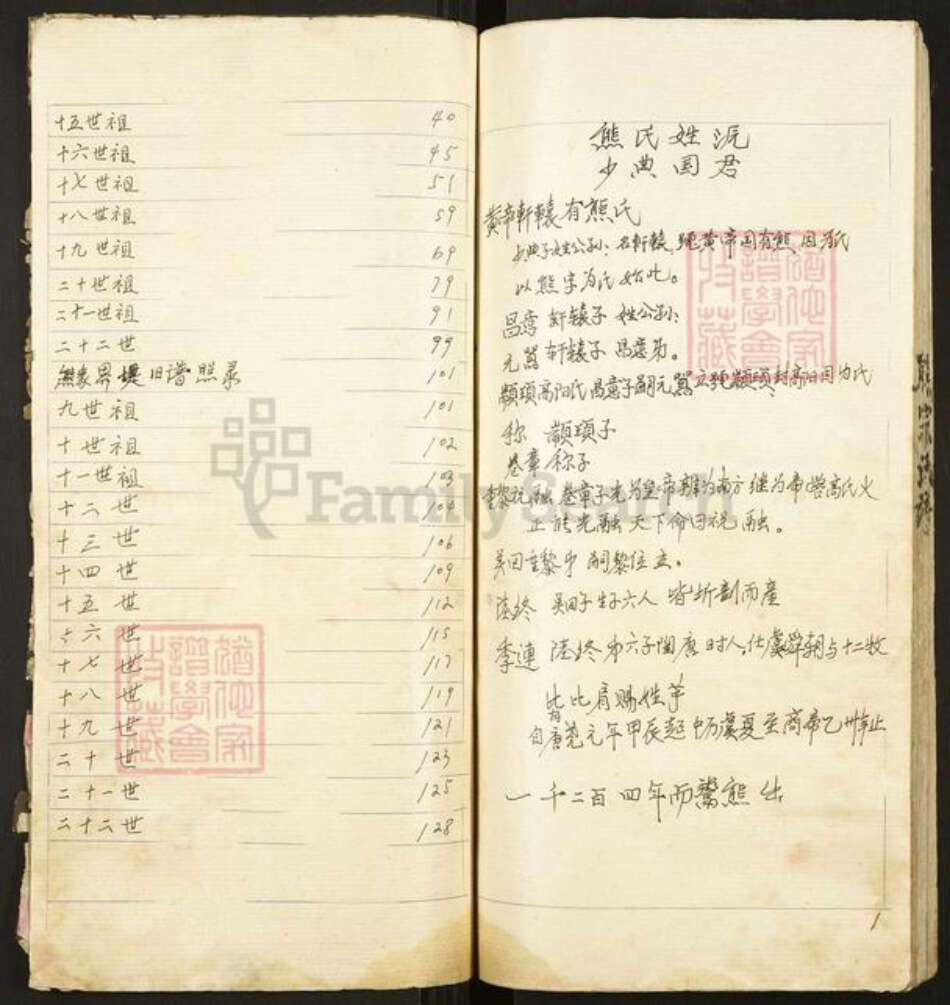 十五世祖 40
十六世祖 45
十七世祖 51
十八世祖 59
十九世祖 69
二十世祖 79
二十一世祖 91
二十二世 99
熊家界 旧谱照录 101
九世祖 101
十世祖 102
十一世祖 103
十二世 104
十三世 106
十四世 109
十五世 112
十六世 115
十七世 117
十八世 119
十九世 121
二十世 123
二十一世 125
二十二世 128
熊氏姓派
少典国君
黄帝軒轅有熊氏
少典子姓公孙:名軒轅,号黄帝国有熊,因为氏
以熊字为氏始此。
昌意 軒辕子 姓公孙:
元嚣 軒辕子 昌意弟。
顓頊高阳氏昌意子嗣元嚣立号顓頊封高阳因为氏
称 顓頊子
卷章 称子
黎祝融 卷章子 为南方 继为帝嚳高氏火
正能光融天下命曰祝融。
吴回重黎弟 嗣黎位立。
陆终 吴回子生子六人 皆坼剖而產
季連 陆终弟六子陶唐时人,仕虞舜朝与十二牧
有比比肩赐姓芈
自唐堯元年甲辰起中历虞夏至商帝乙 止
一千二百四年而鬻熊出
1
猶他家
譜學會
收藏
猶他家
譜學會
收藏
FamilySearch